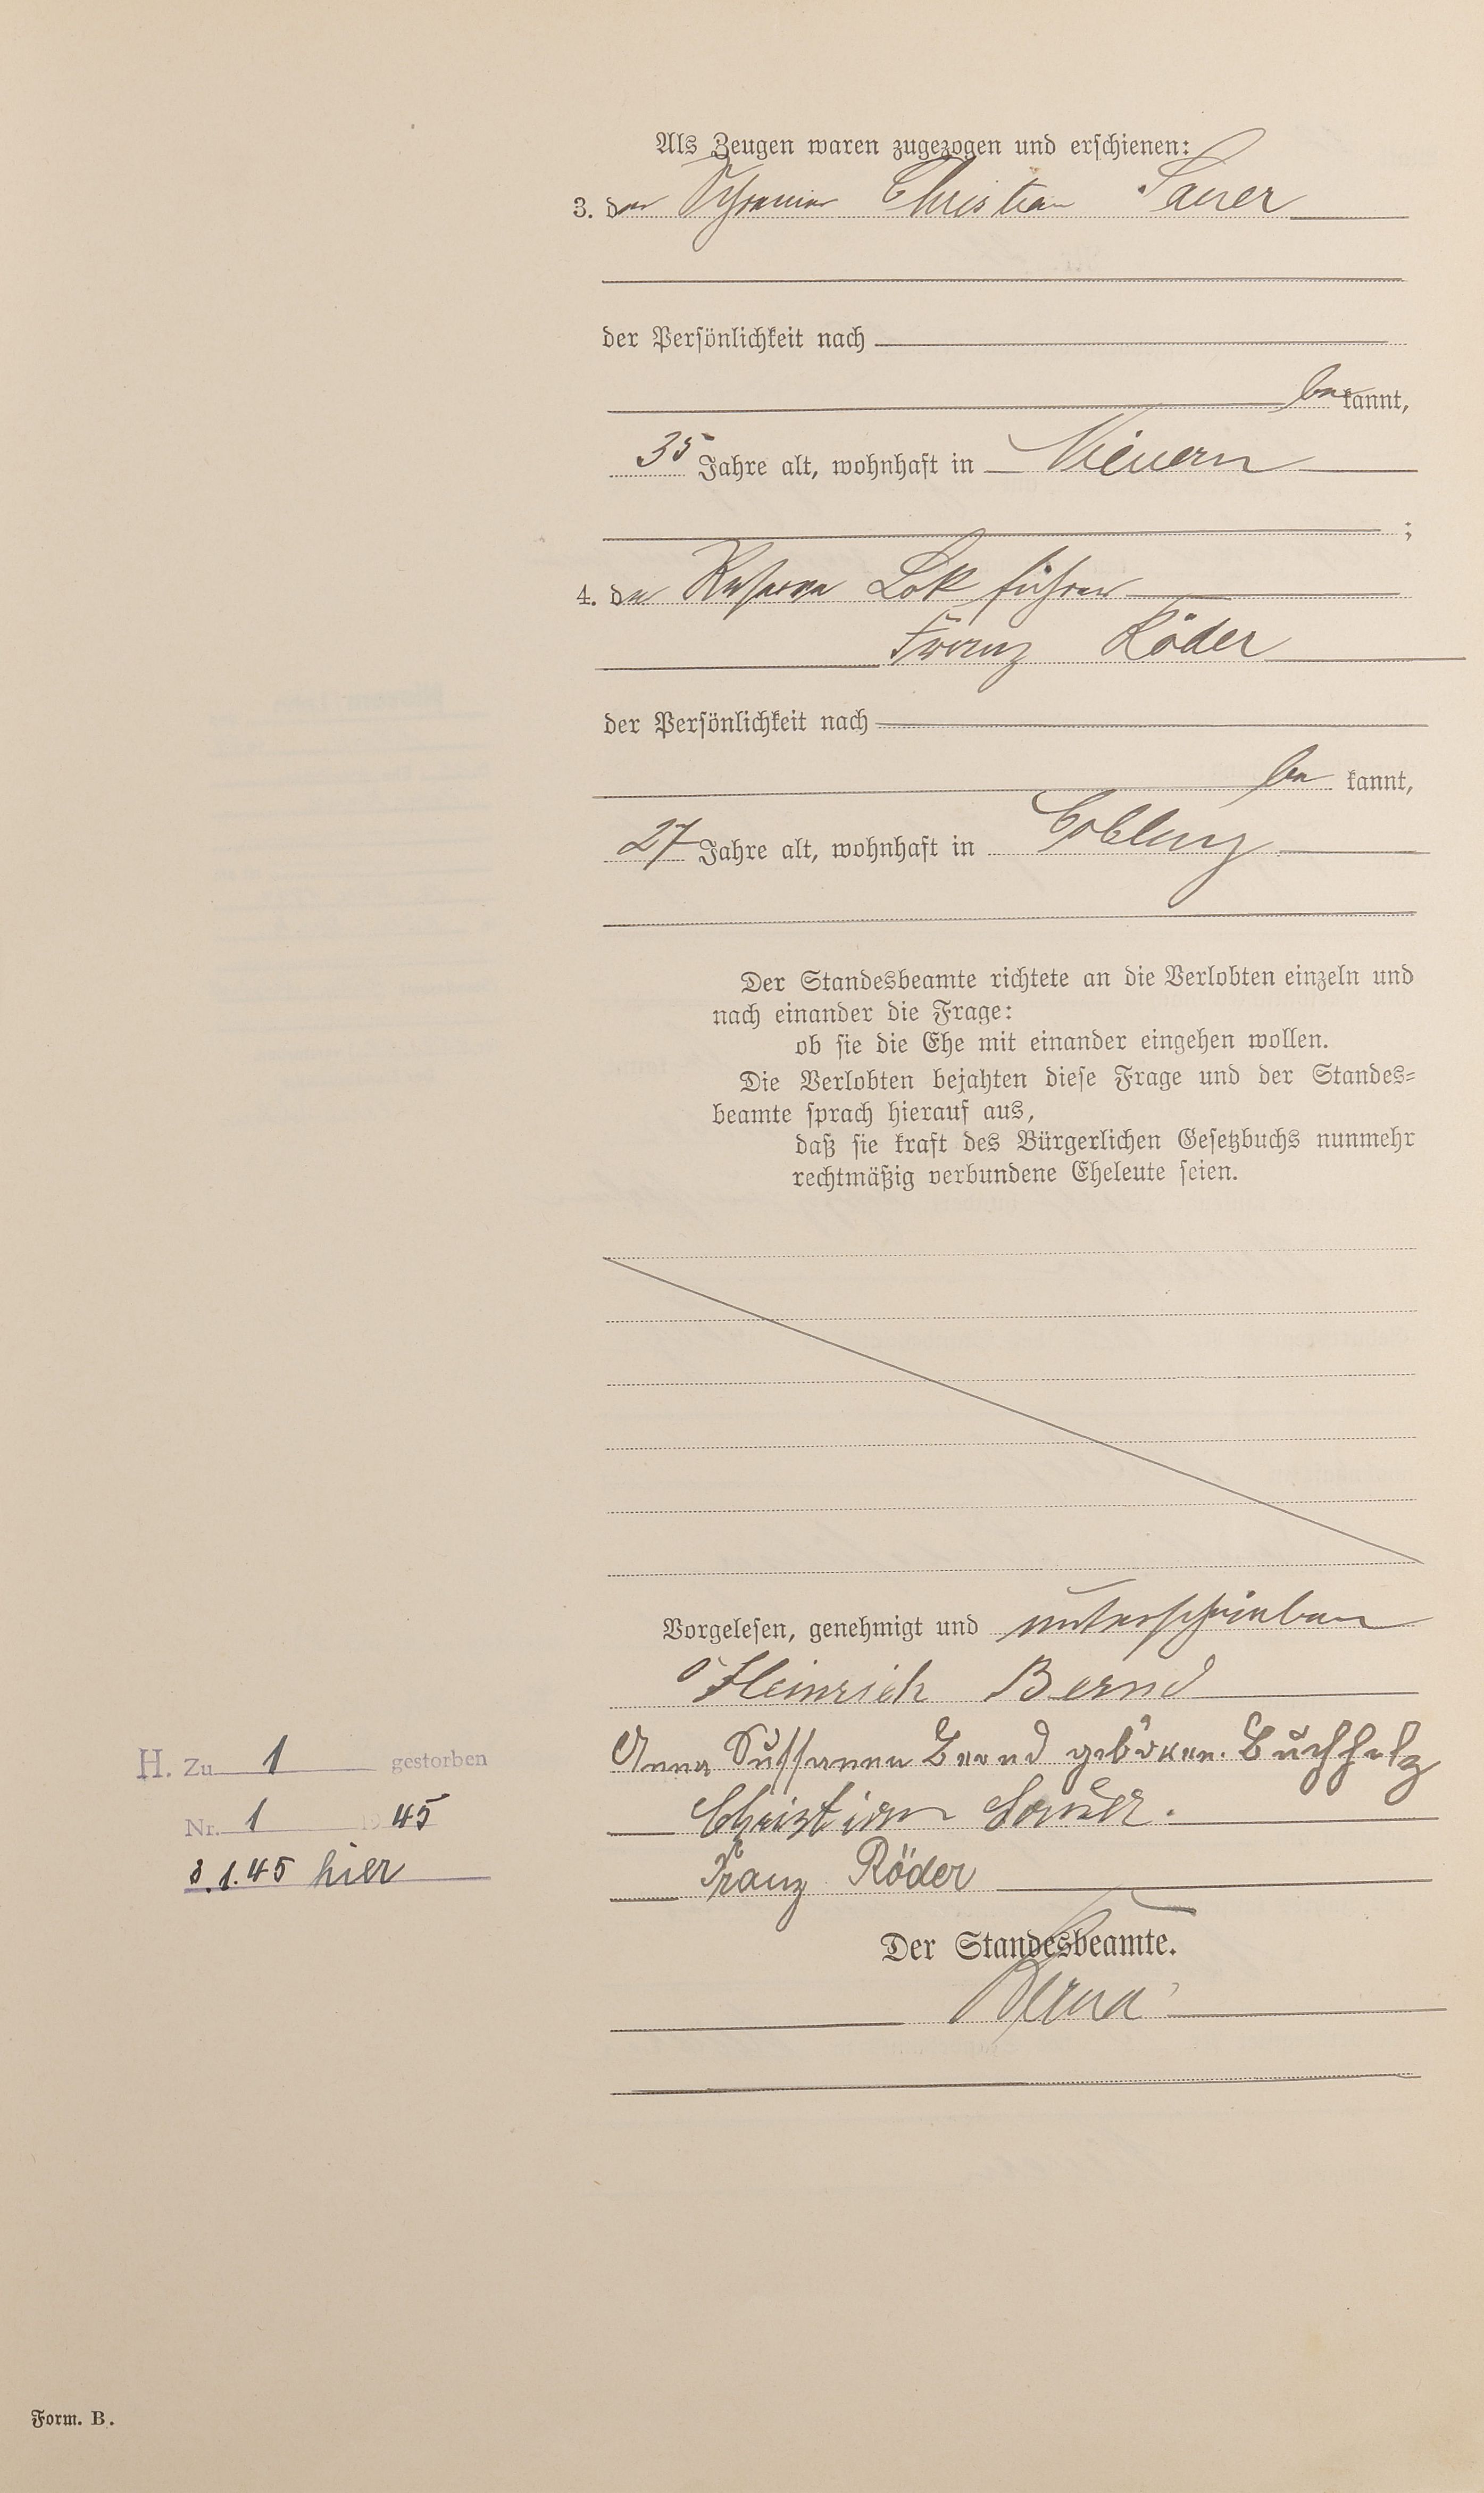 Als Zeugen waren zugezogen und erschienen:
3. der Schreiner Christian Sauer
der Persönlichkeit nach
be kannt,
35 Jahre alt, wohnhaft in Nievern
;
4. der Reserve Lok führer
Franz Röder
der Persönlichkeit nach
be kannt,
27 Jahre alt, wohnhaft in Coblenz
Der Standesbeamte richtete an die Verlobten einzeln und
nach einander die Frage:
ob sie die Ehe mit einander eingehen wollen.
Die Verlobten bejahten diese Frage und der Standes-
beamte sprach hierauf aus,
daß sie kraft des Bürgerlichen Gesetzbuchs nunmehr
rechtmäßig verbundene Eheleute seien.
Vorgelesen, genehmigt und unterschrieben
Heinrich Bernd
Anna Sussanna Bernd geboren. Buchholz
H. Zu 1 gestorben
Christian Sauer.
Nr. 1 1945
Franz Röder
3.1.45 hier
Der Standesbeamte.
Form. B.